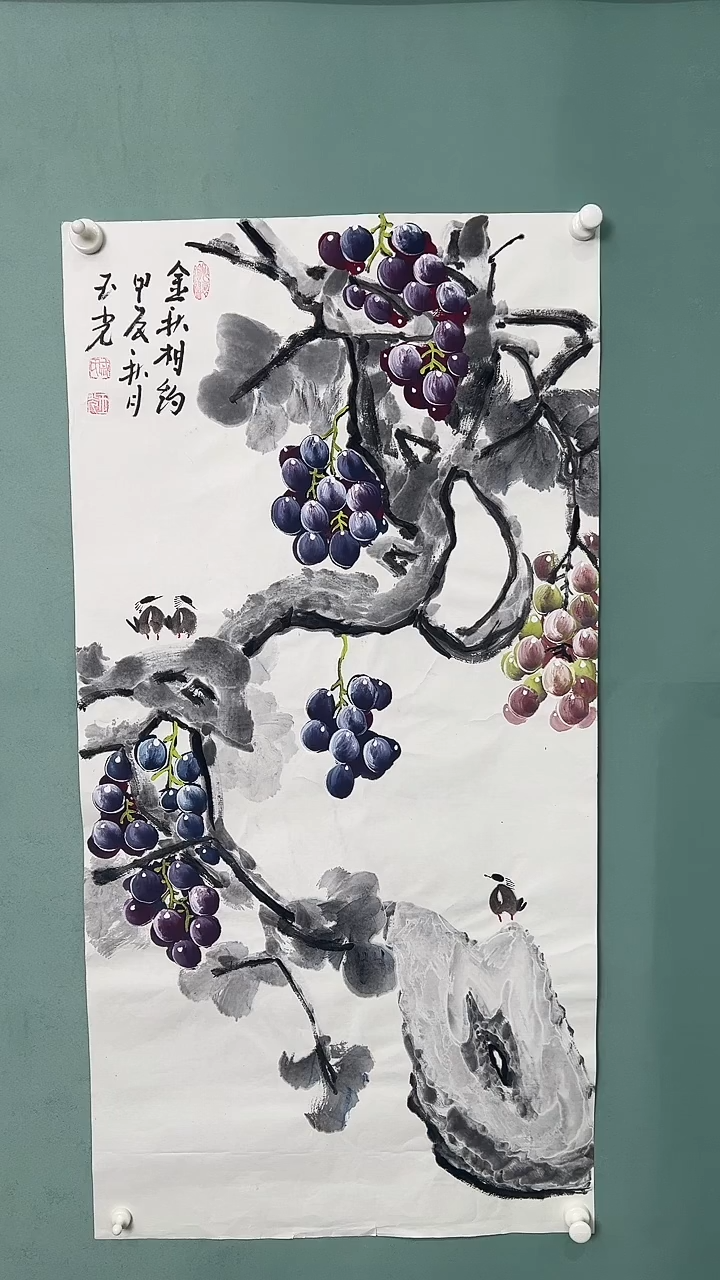 金秋相约
甲辰秋月
玉光